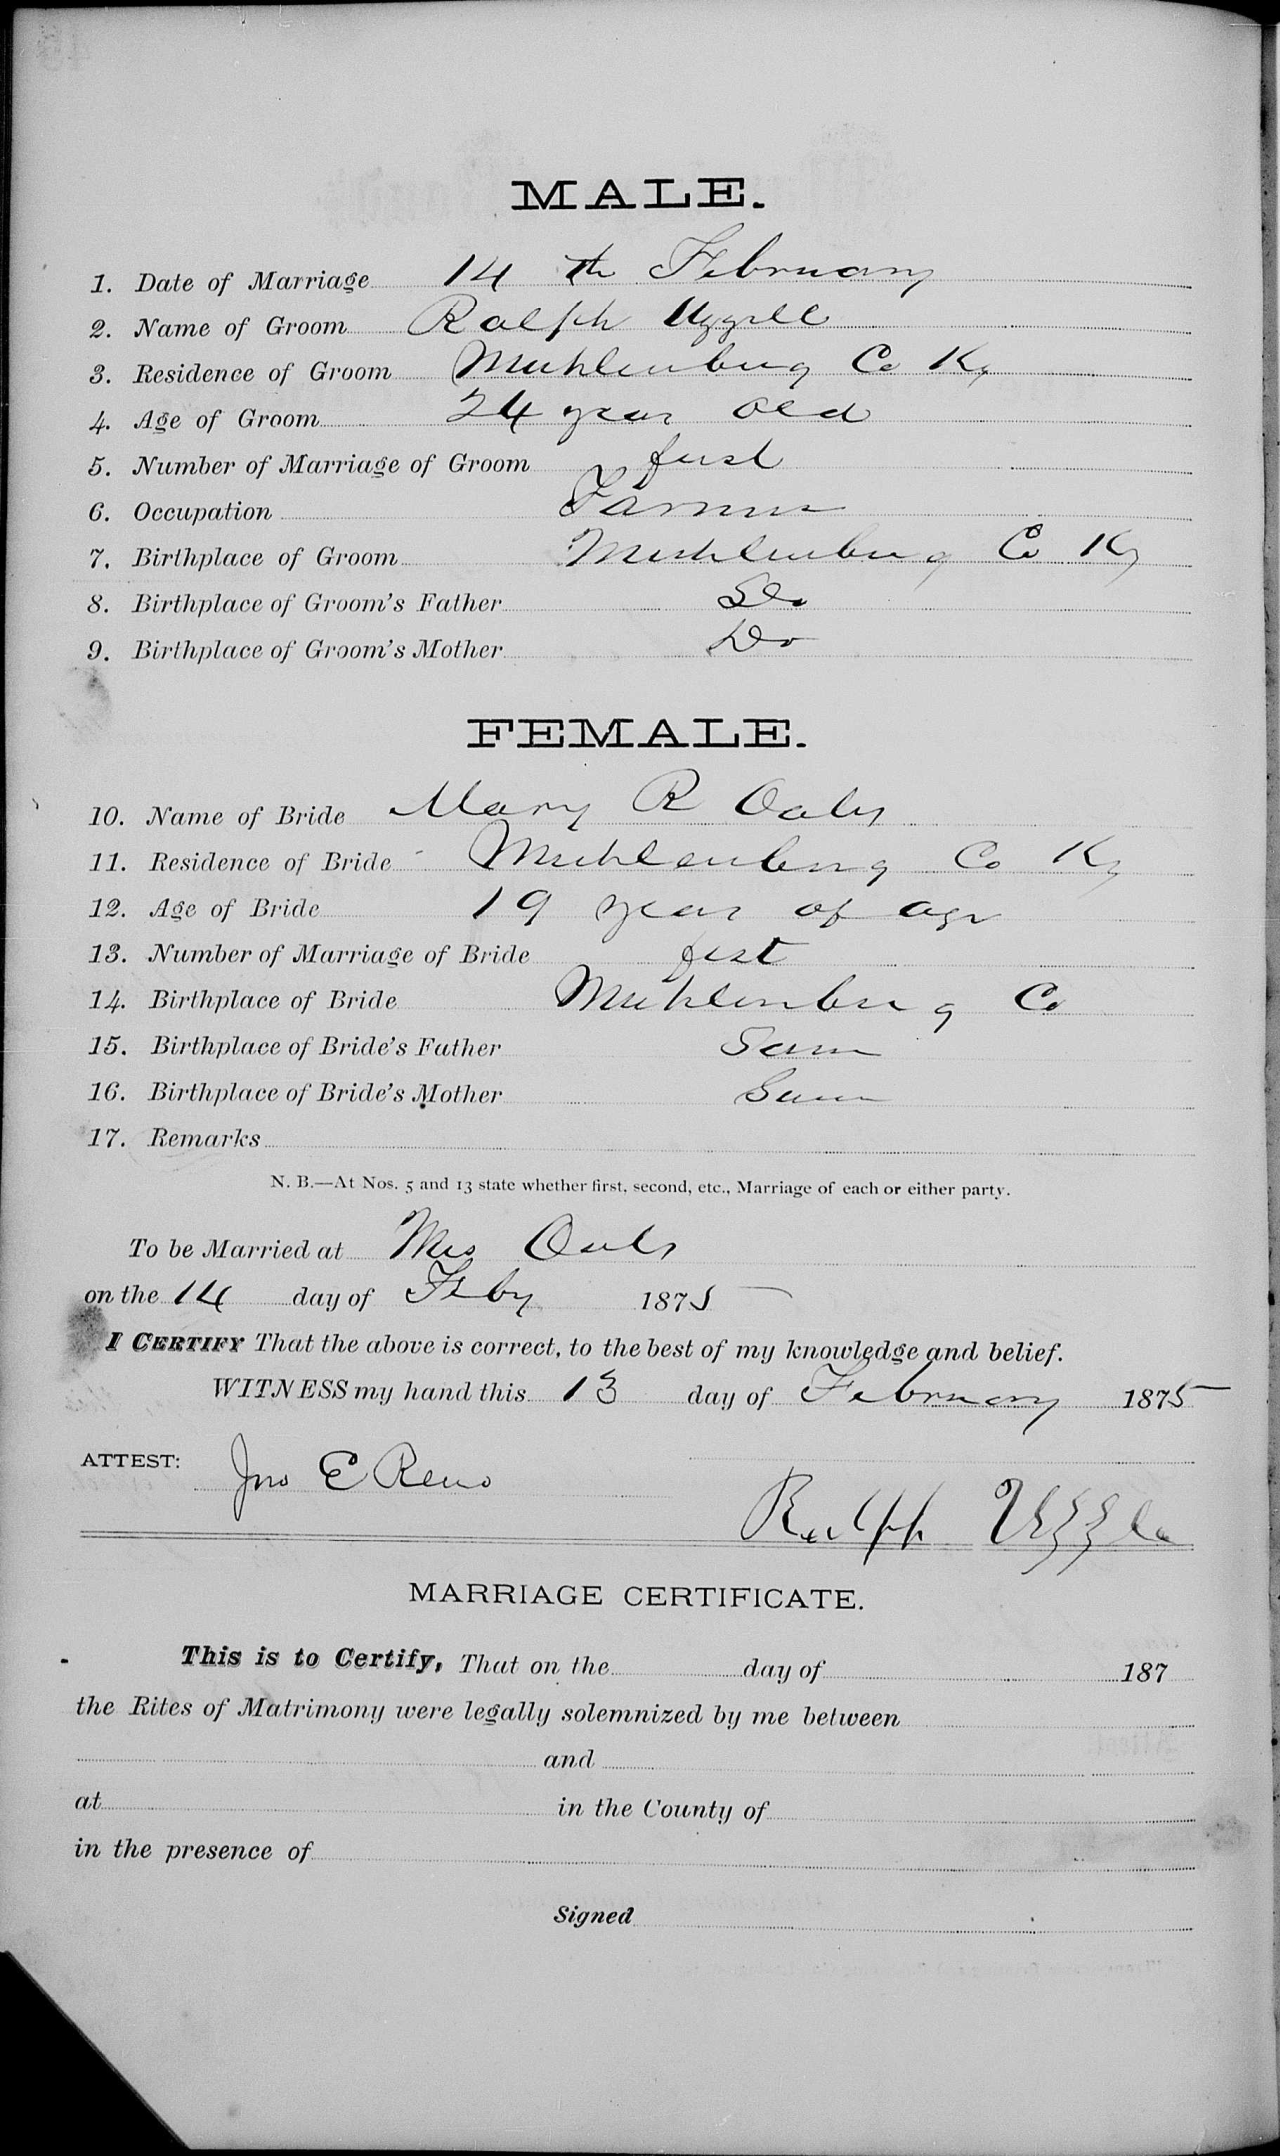 MALE.
1. Date of Marriage 14 th February
2. Name of Groom Ralph Uzzell
3. Residence of Groom Muhlenburg Co Ky
4. Age of Groom 24 year old
5. Number of Marriage of Groom first
6. Occupation Farmer
7. Birthplace of Groom Muhlenburg Co Ky
8. Birthplace of Groom's Father Do
9. Birthplace of Groom's Mother Do
FEMALE.
10. Name of Bride Mary R Oates
11. Residence of Bride Muhlenburg Co Ky
12. Age of Bride 19 years of age
13. Number of Marriage of Bride first
14. Birthplace of Bride Muhlenburg Co
15. Birthplace of Bride's Father Same
16. Birthplace of Bride's Mother Same
17. Remarks
N. B.—At Nos. 5 and 13 state whether first, second, etc., Marriage of each or either party.
To be Married at Mrs Oates
on the 14 day of Feby 1875
I CERTIFY That the above is correct, to the best of my knowledge and belief.
WITNESS my hand this 13 day of February 1875
ATTEST: Jno E Reno
Ralph Uzzle
MARRIAGE CERTIFICATE.
This is to Certify, That on the day of 187
the Rites of Matrimony were legally solemnized by me between
and
at in the County of
in the presence of
Signed